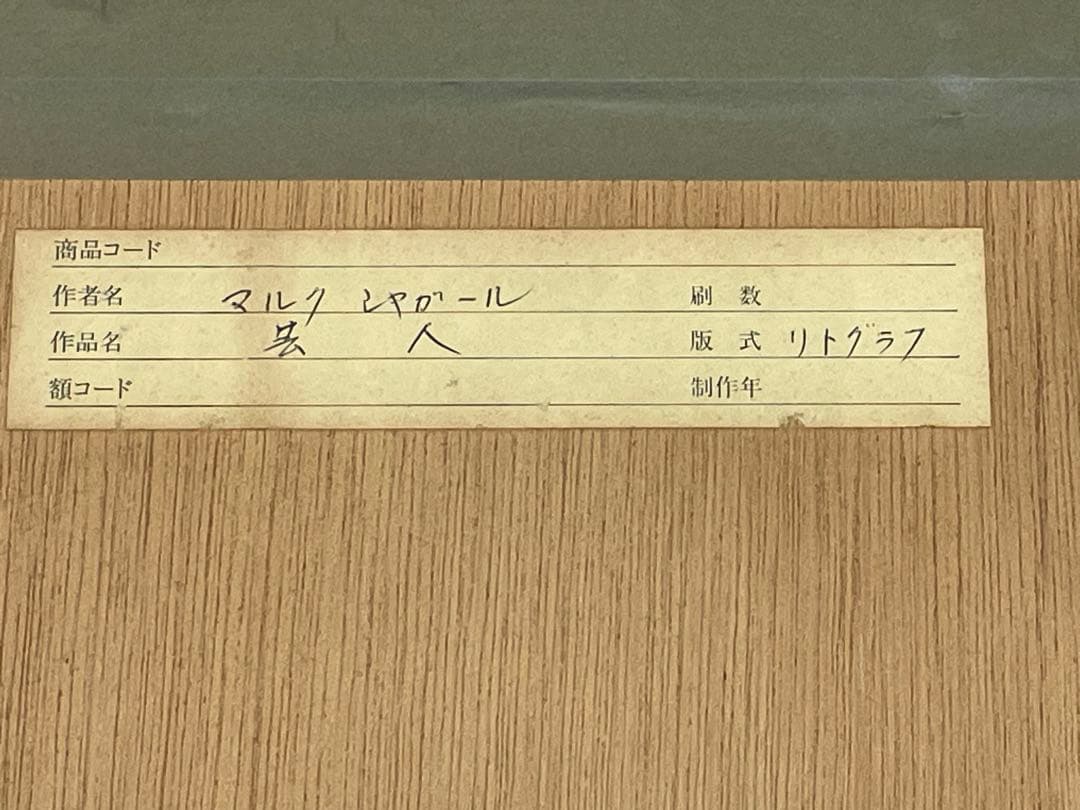 商品コード
作者名 マルク シャガール 刷 数
作品名 芸 人 版 式 リトグラフ
額コード 制作年